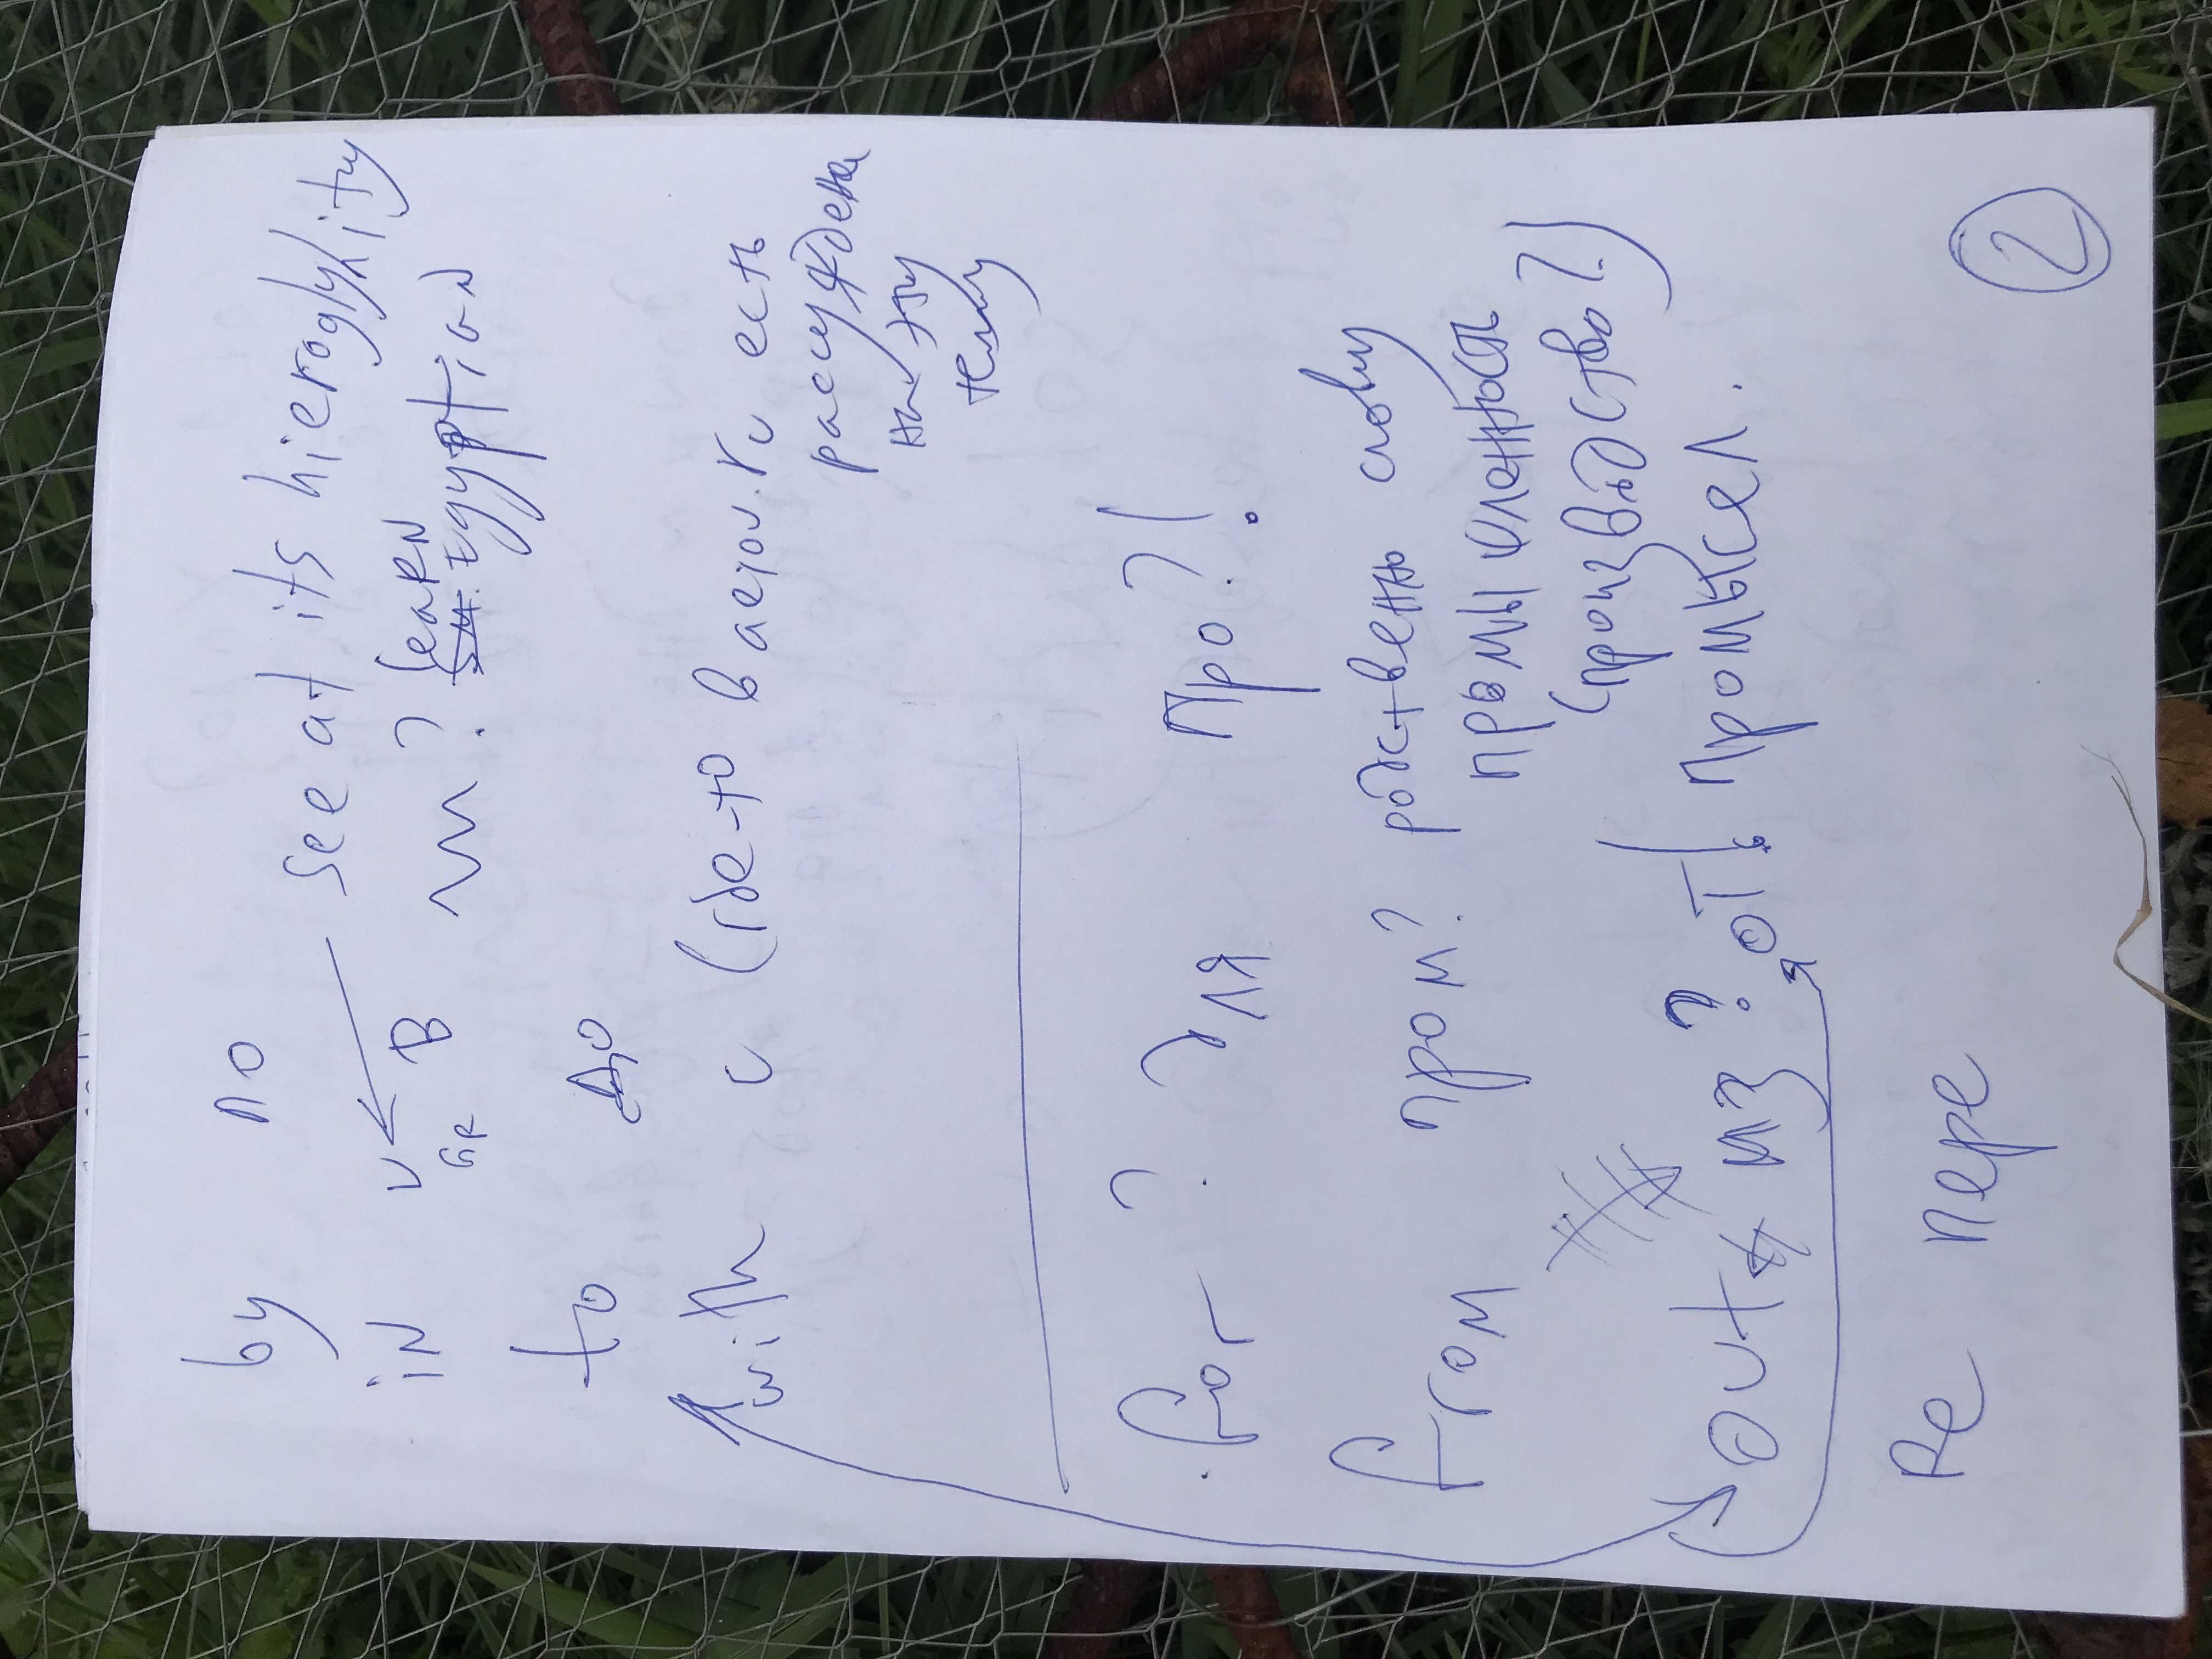 by по
see at its hieroglyhity
in ν В ? learn
GR Egyptian
to до
with с (где-то в aeiou.ru есть
рассуждения
на эту
тему
for ? для Про?!
from пром? родственно слову
промышленность
(производство?)
out из? от! Промысел.
Re пере
2